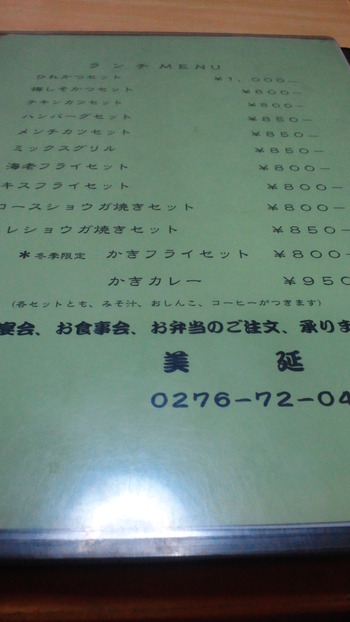 ランチMENU
ひれかつセット ￥１，０００－
梅しそかつセット ￥８００－
チキンカツセット ￥８００－
ハンバーグセット ￥８５０－
メンチカツセット ￥８５０－
ミックスグリル ￥８５０－
海老フライセット ￥８００－
キスフライセット ￥８００－
ロースショウガ焼きセット ￥８００－
レショウガ焼きセット ￥８５０－
＊冬季限定 かきフライセット ￥８００－
かきカレー ￥９５０
(各セットとも、みそ汁、おしんこ、コーヒーがつきます)
宴会、お食事会、お弁当のご注文、承りま
美 延
0276－72－04